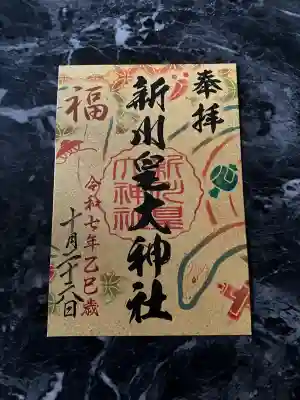 奉拝
新川皇大神社
新川皇大神社
福
令和七年乙巳歳
十月二十六日